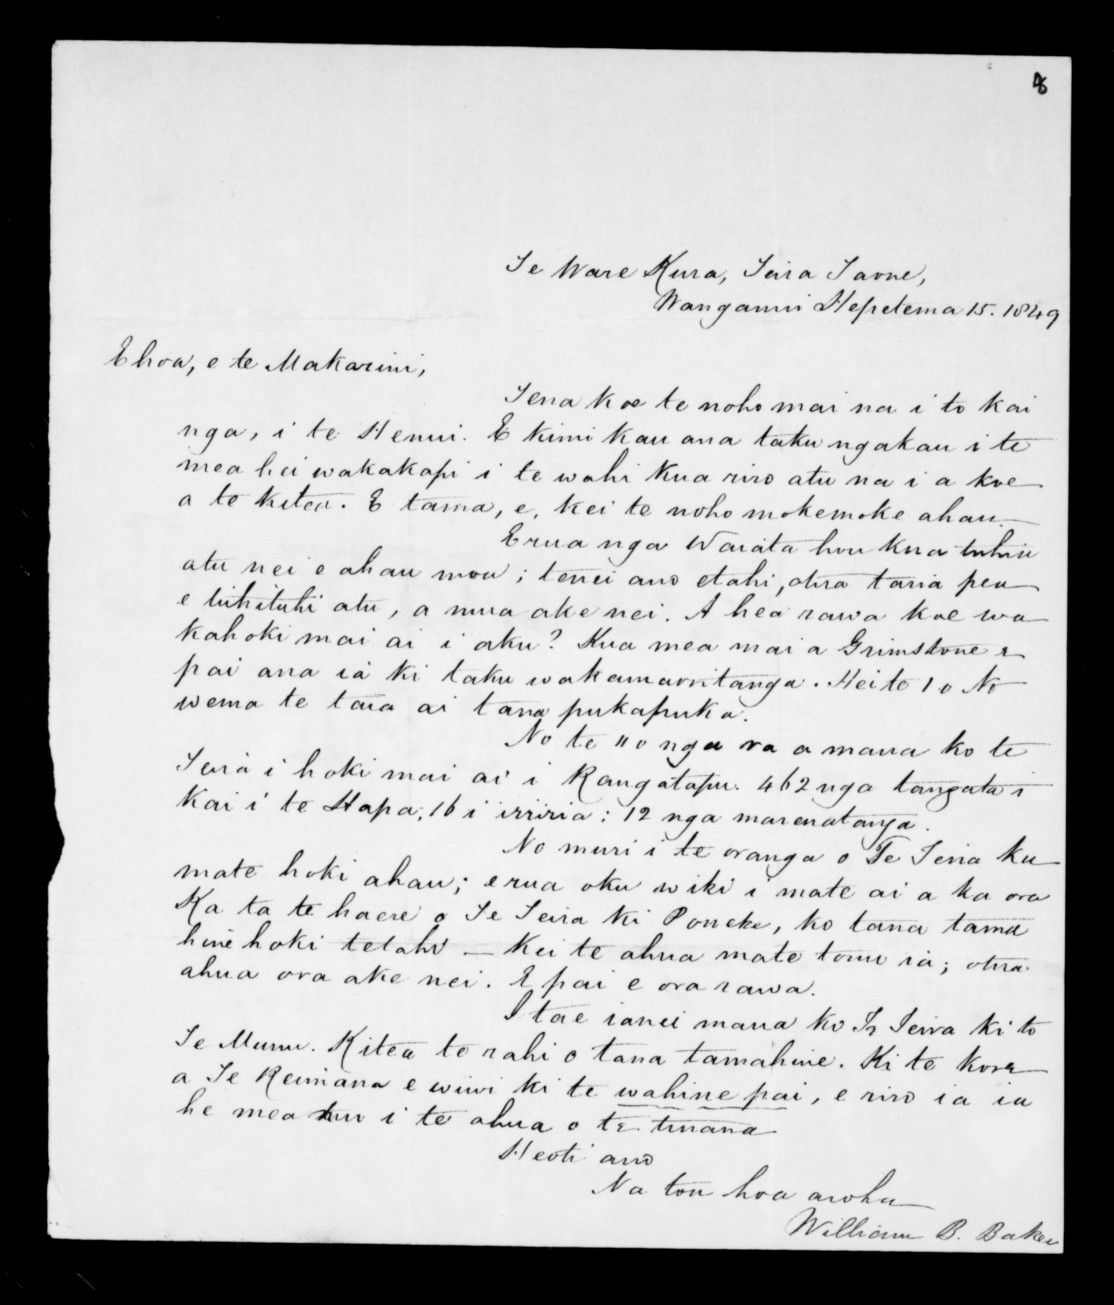 8
Te Ware Kura, Teira Taone,
Wanganui Hepetema 15. 1849
E hoa, e te Makarini,
Tena koe te noho mai na i to kai
nga, i te Henui. E kimi kau ana taku ngakau i te
mea hei wakakapi i te wahi kua riro atu na i a koe
a te kitea. E tama, e, kei te noho mokemoke ahau.
E rua nga Waiata hou kua tuhia
atu nei e ahau mou; tenei ano etahi, otira taria pea
e tuhituhi atu, a mua ake nei. A hea rawa koe wa
kahoki mai ai i aku? Kua mea mai a Grimstone e
pai ana ia ki taku wakamaoritanga. Hei te 1 o No
wema te taia ai tana pukapuka.
No te 11 o nga ra a maua ko te
Teira i hoki mai ai i Rangatapu. 462 nga tangata i
kai i te Hapa; 16 i iriiria: 12 nga marenatanga.
No muri i te oranga o Te Teira ku
mate hoki ahau; e rua oku wiki i mate ai a ka ora
Ka ta te haere o Te Teira ki Poneke, ko tana tama
hine hoki tetahi — Kei te ahua mate tonu ia; otira
ahua ora ake nei. E pai e ora rawa.
I tae ianei maua ko Te Teira ki to
Te Mumu. Kitea te rahi o tana tamahine. Ki te kore
a Te Reimana e wiwi ki te wahine pai, e riro ia ia
he mea i te ahua o te tuuana
Heoti ano
Na tou hoa aroha
William B. Baker